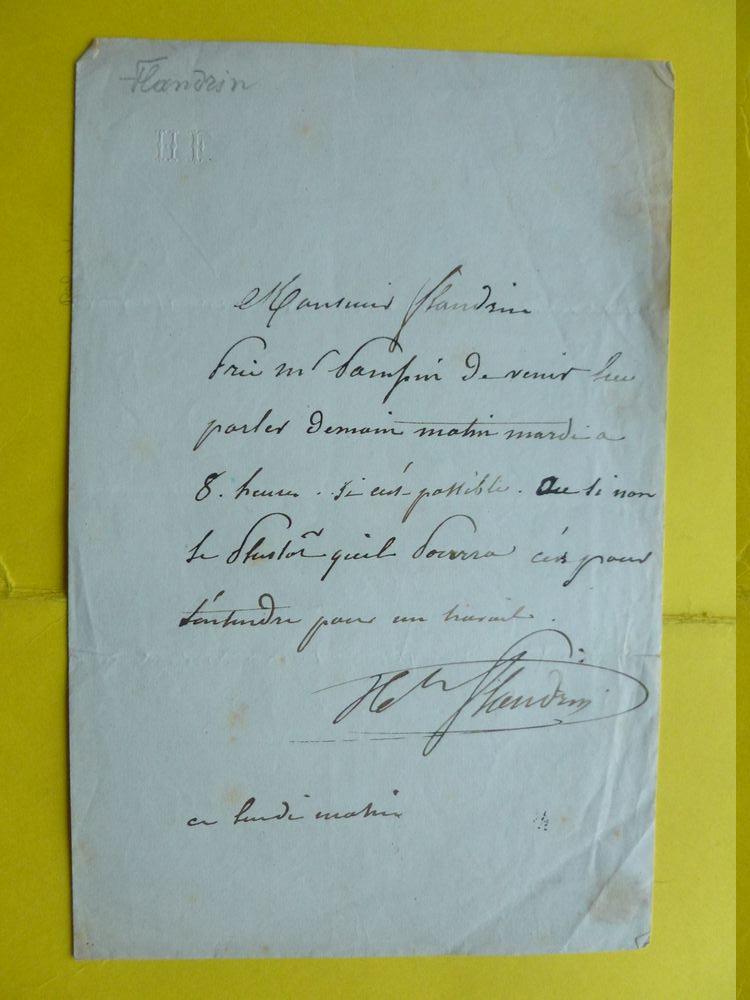 Flandrin
HF
Monsieur Flandrin
Prie Mr Pampin de venir lui
parler demain matin mardi a
8. heures. si c'est possible. Ou si non
le plustôt qu'il pourra c'est pour
s'entendre pour un travail.
Hte Flandrin
ce lundi matin